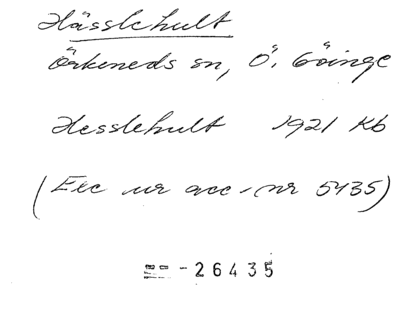 Hässlehult
Örkeneds sn, Ö. Göinge
Hesslehult 1921 Kb
(Exc ur acc.nr 5435)
-26435